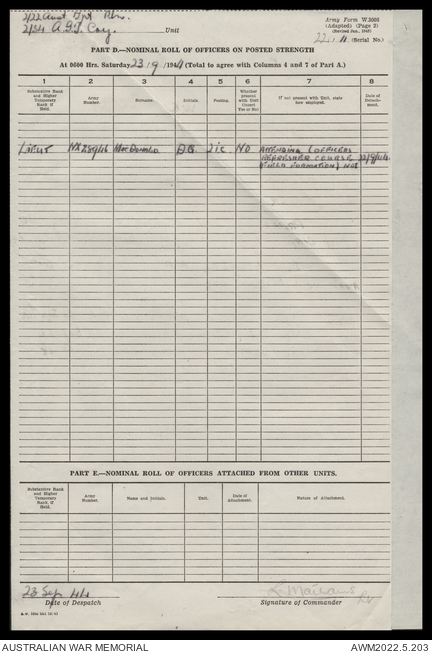 2/22 Aust
2/54 A.G.T. Coy. Unit
Army Form W.3008
(Adapted) (Page 2)
(Revised Jan., 1943)
22. (Serial No.)
PART D.—NOMINAL ROLL OF OFFICERS ON POSTED STRENGTH
At 0600 Hrs. Saturday 23/9/1944 (Total to agree with Columns 4 and 7 of Part A.)
1 2 3 4 5 6 7 8
Substantive Rank and Higher Temporary Rank if Held. Army Number. Surname. Initials. Posting. Whether present with Unit (insert Yes or No) If not present with Unit, state how employed. Date of Detachment.
Lieut NX MacDonald 2ic NO ATTENDING (OFFICERS
REFRESHER COURSE
(FIELD FORMATION)
PART E.—NOMINAL ROLL OF OFFICERS ATTACHED FROM OTHER UNITS.
Substantive Rank and Higher Temporary Rank if Held. Army Number. Name and Initials. Unit. Date of Attachment. Nature of Attachment.
23 Sep 44
Date of Despatch Signature of Commander
AUSTRALIAN WAR MEMORIAL AWM2022.5.203